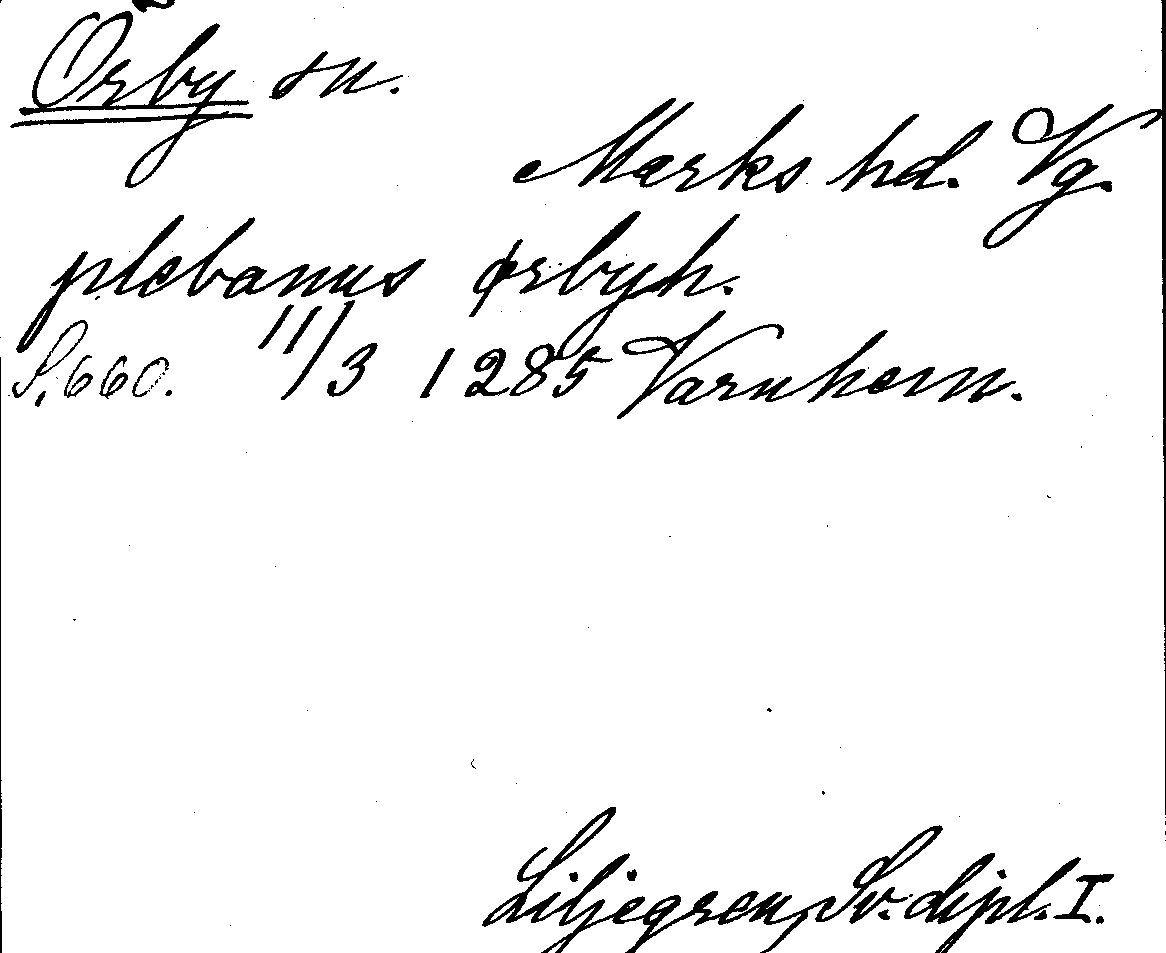 Örby sn.
Marks hd. Vg.
plebanus ørbyh.
S. 660. 11/3 1285 Varnhem.
Liljegren, Sv. dipl. I.